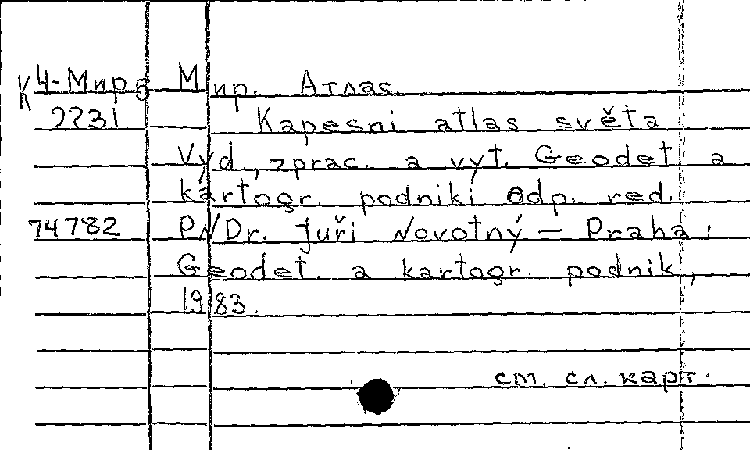 К 4-Мир5 Мир. Атлас.
2231 Kapesni atlas světa
Vyd., zprac. a vyt. Geodet a
kartogr. podniki Odp. red.
74782 PNDr. Juři Novotný — Praha:
Geodet. a kartogr. podnik,
1983.
см. сл. карт.